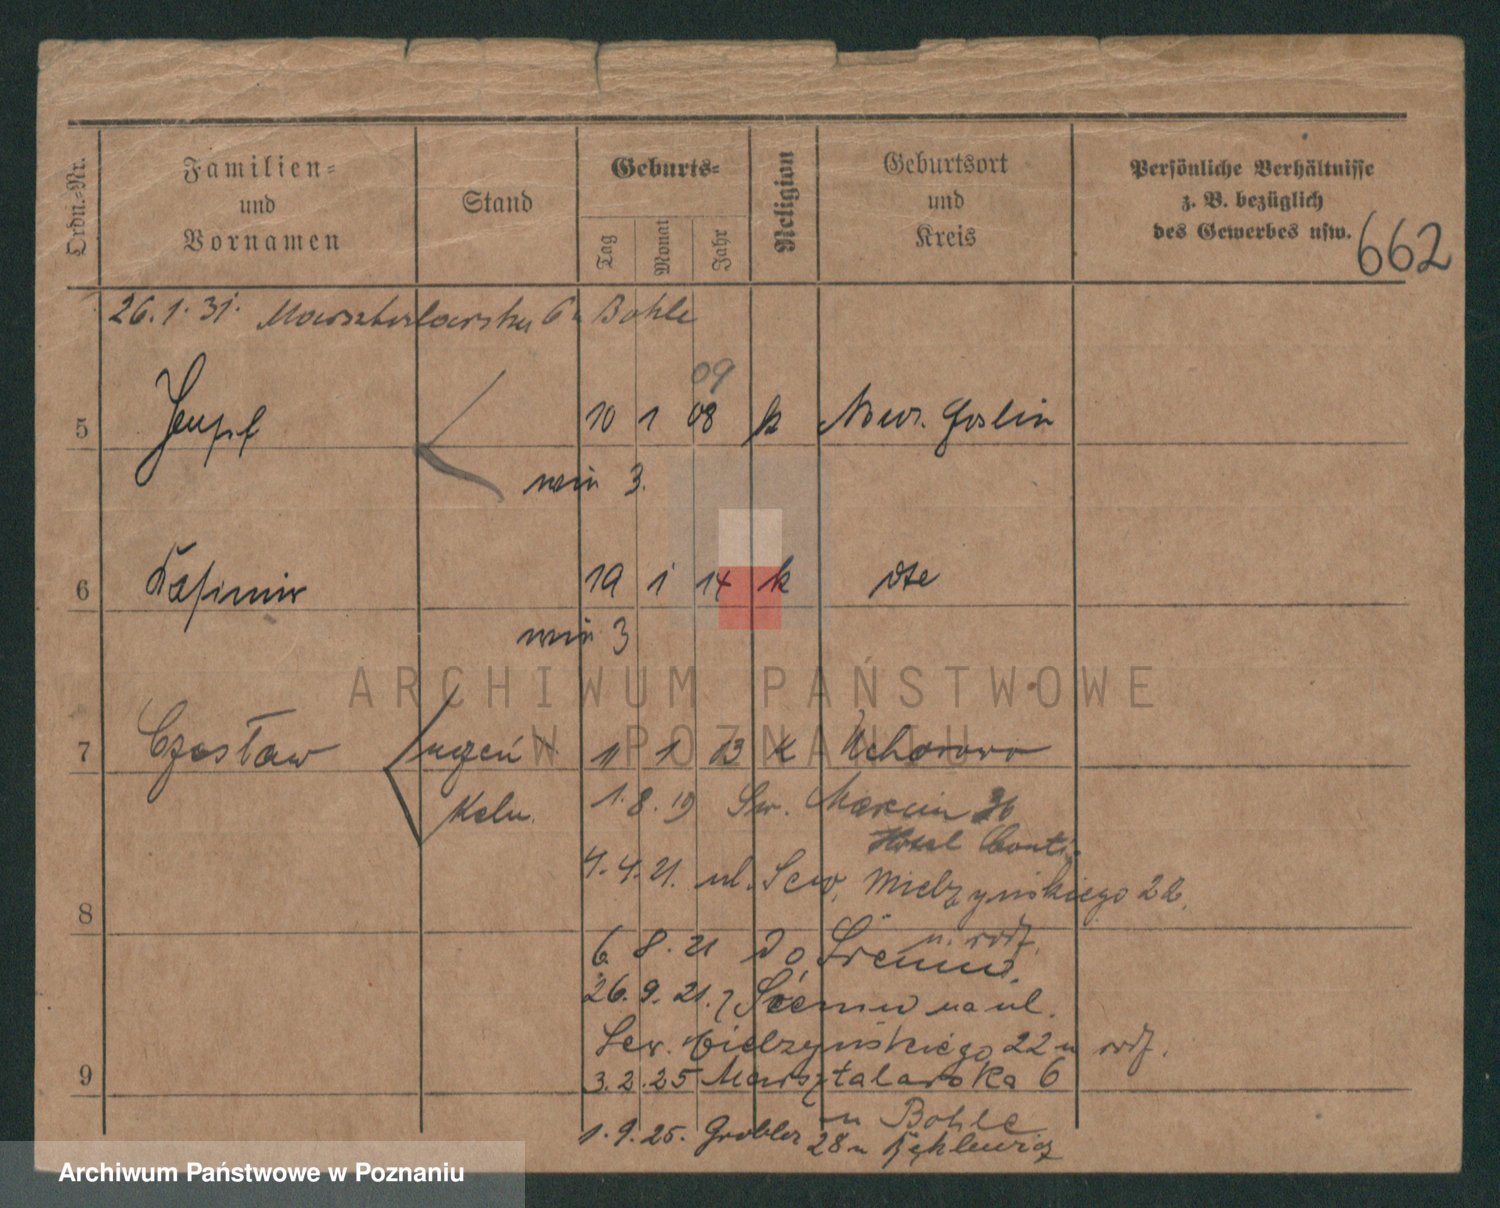 Ordn.-Nr.
Familien-
und
Vornamen
Stand
Geburts-
Tag
Monat
Jahr
Religion
Geburtsort
und
Kreis
Persönliche Verhältnisse
z. B. bezüglich
des Gewerbes usw.
662
26.1.31. Marsztalarska 6 u Bohle
09
5 10 1 08 k Goslin
wie 3.
6 Kasimir 19 1 14 k dte
wie 3
7 Czesław uczeń 1 1 13 k Uchorowo
Keln.
1.8.19 Św. Marcin 36
Hotel Conti.
4.4.21. ul. Sew. Mielżyńskiego 22.
8
u. rodz.
6 8.21 do Śremu.
26.9.21. z Śremu na ul.
Sew. Mielżyńskiego 22 u rodz.
9 3.2.25 Marsztalarska 6
u Bohle
1.9.25. Grobla 28 u
ARCHIWUM PAŃSTWOWE
W POZNANIU
Archiwum Państwowe w Poznaniu